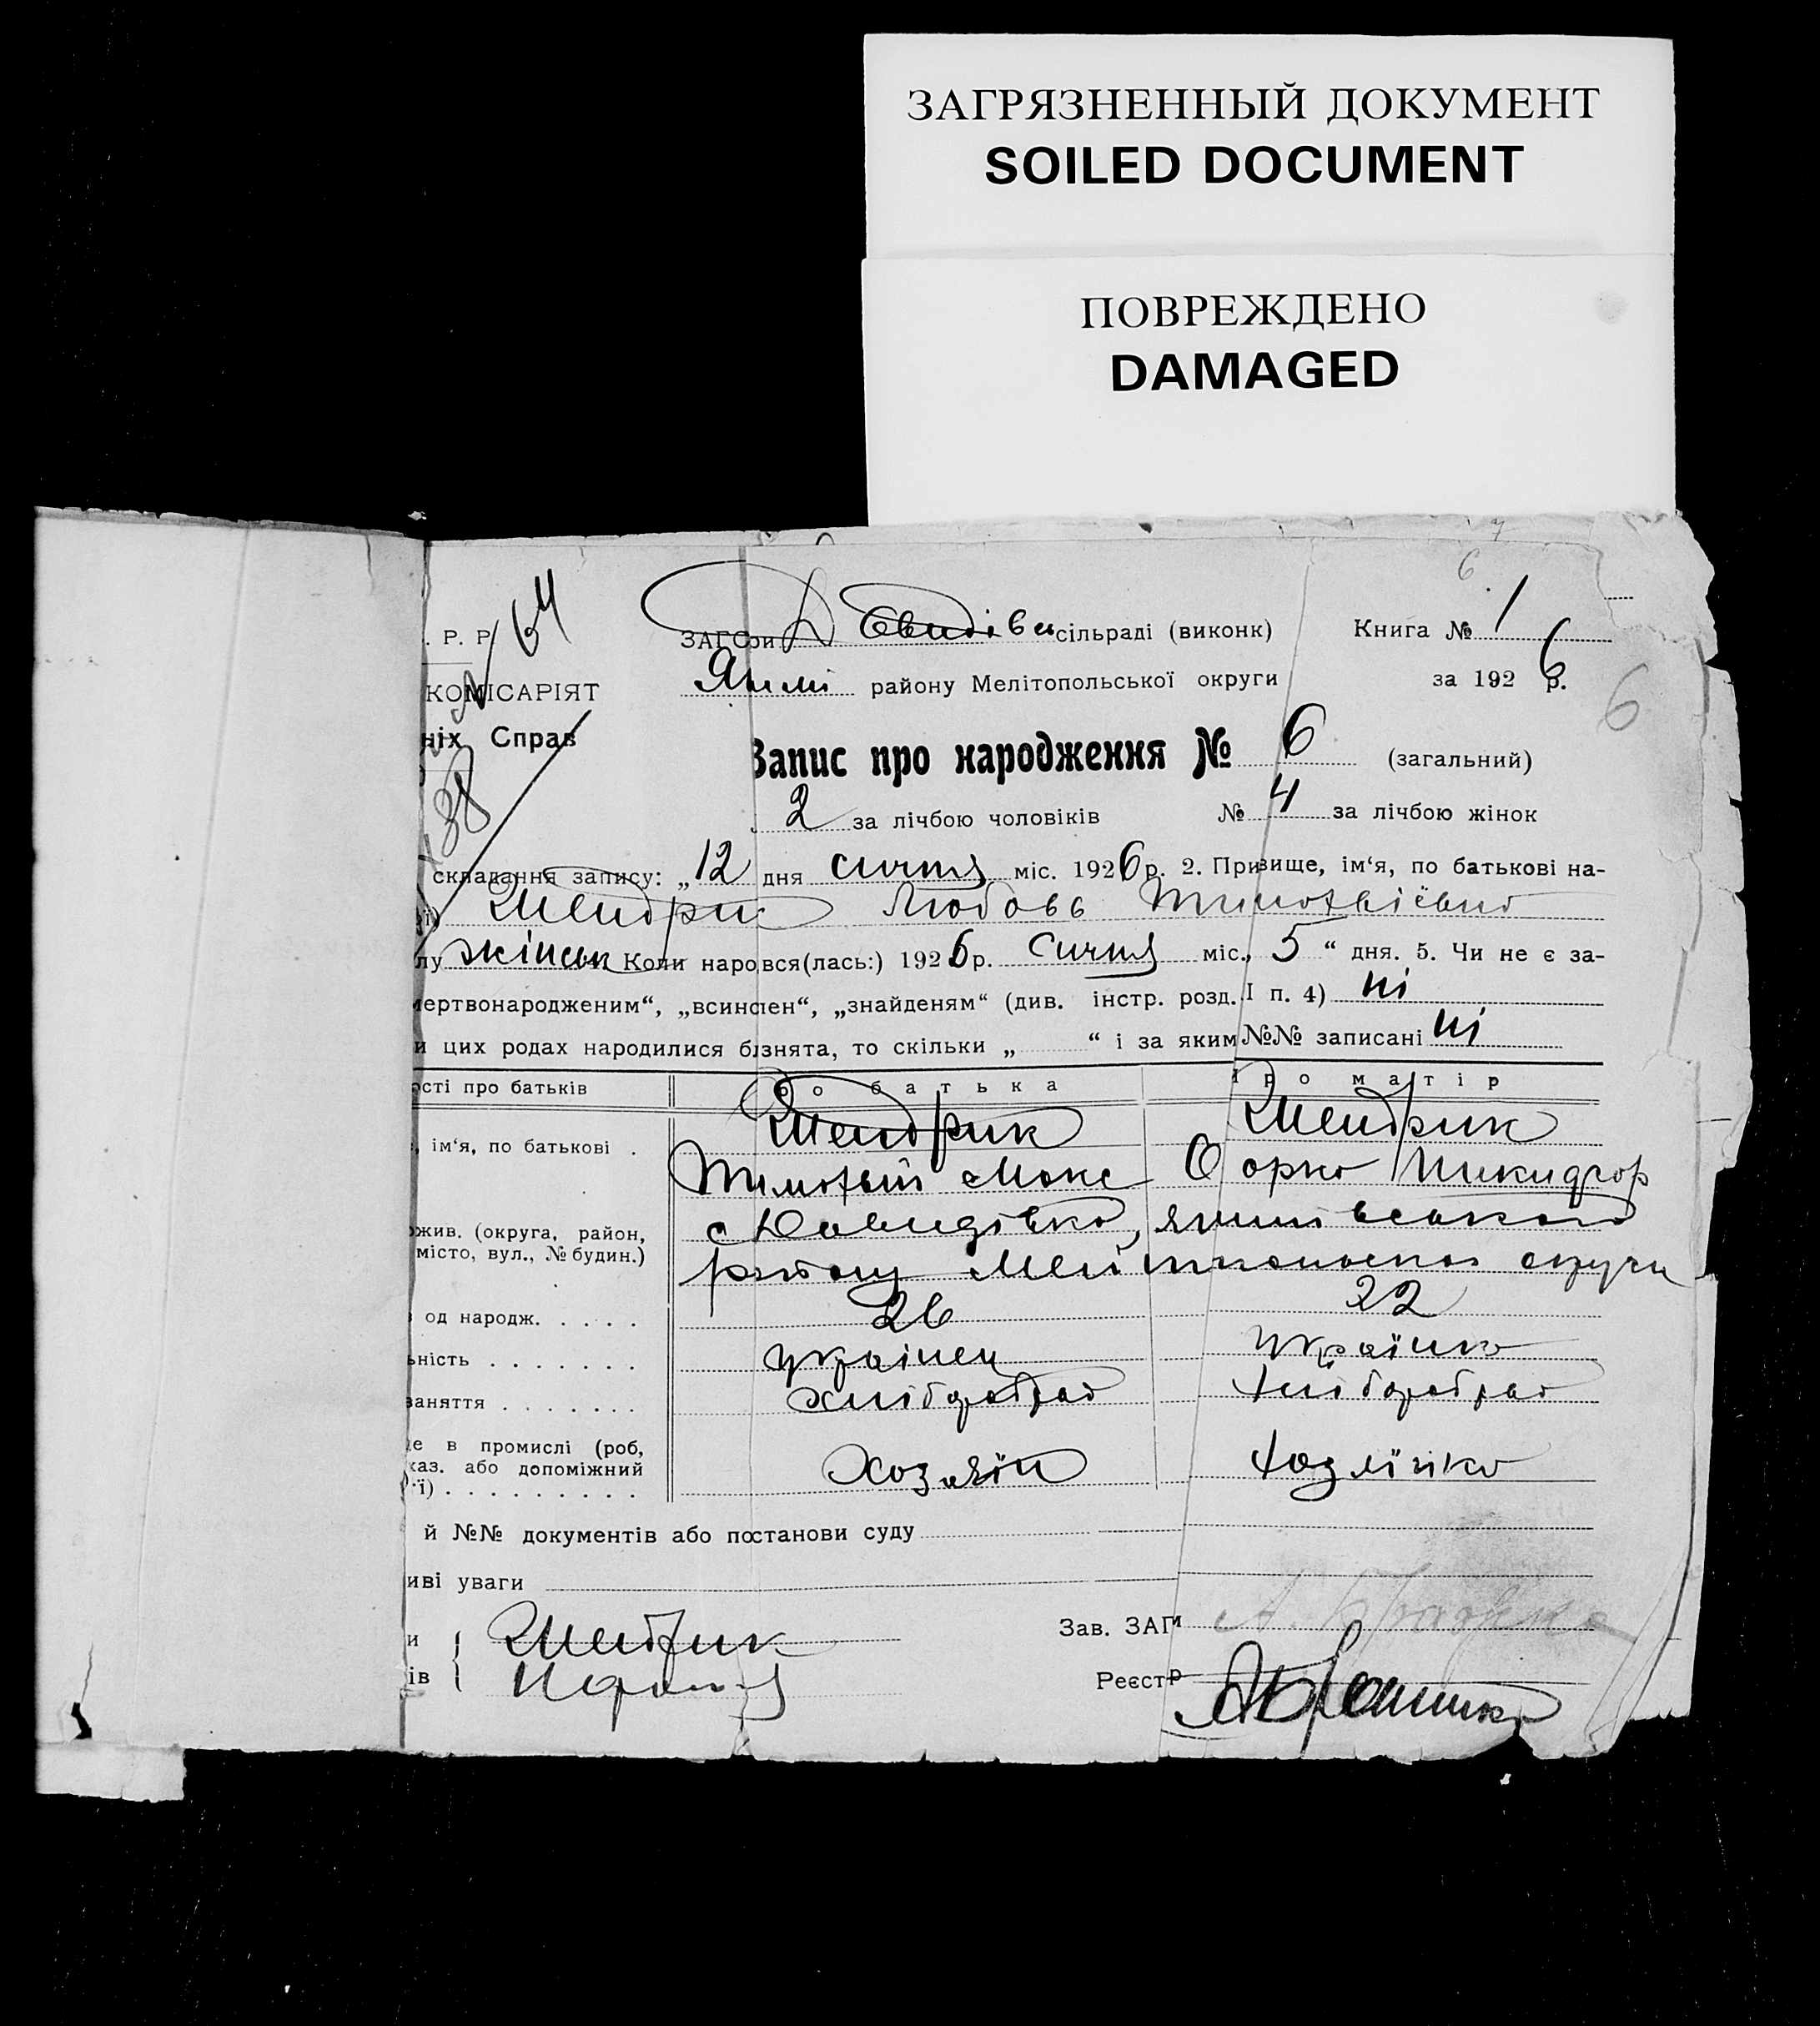 ЗАГРЯЗНЕННЫЙ ДОКУМЕНТ
SOILED DOCUMENT
ПОВРЕЖДЕНО
DAMAGED
6
. Р. Р. 64
ЗАГС при сільраді (виконк) Книга № 1
КОМІСАРІЯТ
району Мелітопольської округи за 1926 р.
6
ніх Справ
Запис про народження № 6 (загальний)
2 за лічбою чоловіків № 4 за лічбою жінок
складання запису: „12 дня сичня міс. 1926 р. 2. Призвище, ім‘я, по батькові на-
Шендрик Любовь Тимофеіевна
лу жіноч Коли наровся(лась:) 1926 р. Сичня міс., 5 “ дня. 5. Чи не є за-
мертвонародженим“, „всиновлен“, „знайденям“ (див. інстр. розд. І п. 4) ні
и цих родах народилися близнята, то скільки „ “ і за яким №№ записані ні
ості про батьків о батька Про матір
, ім‘я, по батькові . Шендрик Шендрик
Тимофей Макс Никифор
ожив. (округа, район, с Давидівка,
місто, вул., № будин.) району округи
од народж. . . . . 26 22
ьність . . . . . . . українец українка
заняття . . . . . . . хлібороб хлібороб
це в промислі (роб,
каз. або допоміжний Хозяїн Хозяїнка
ї) . . . . . . . . .
й №№ документів або постанови суду
иві уваги
и Шендрик Зав. ЗАГ
ів Реєстр